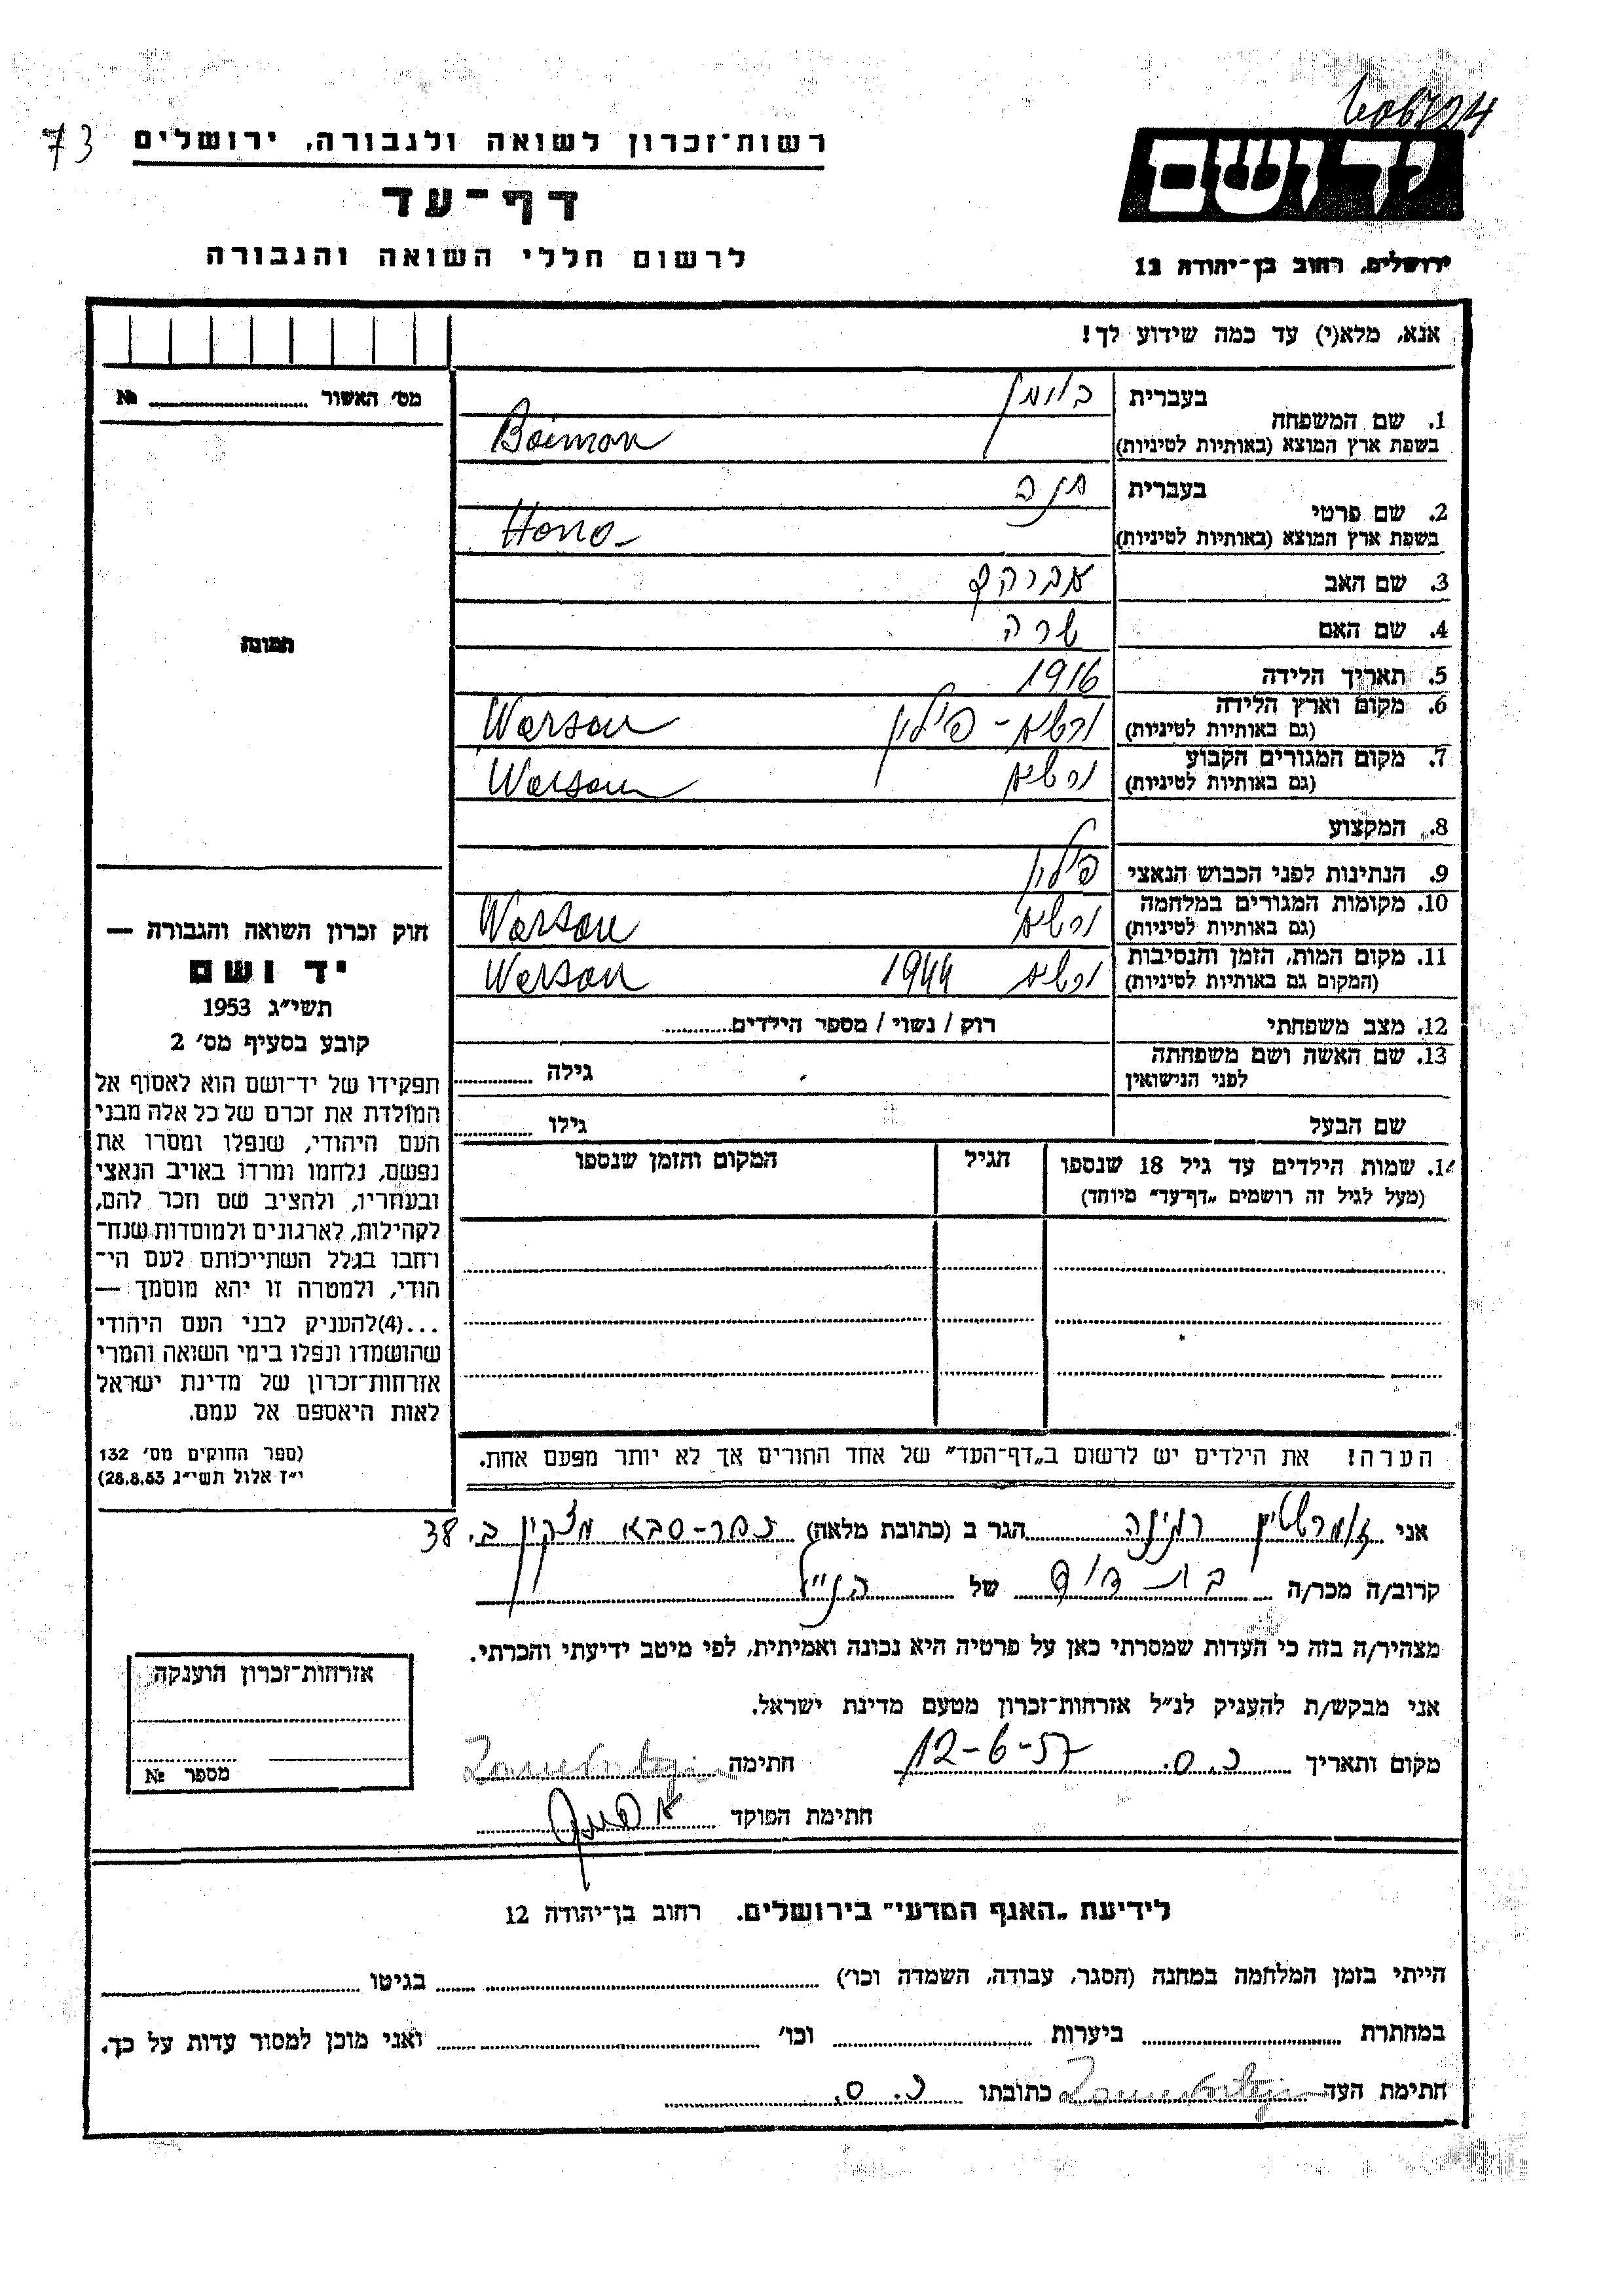 73
רשות־זכרון לשואה ולגבורה, ירושלים
דף־עד
לרשום חללי השואה והגבורה
יד ושם
ירושלים, רחוב בן־יהודה 12
אנא, מלא(י) עד כמה שידוע לך!
מס׳ האשור № 
תמונה
חוק זכרון השואה והגבורה —
יד ושם
תשי״ג 1953
קובע בסעיף מס׳ 2
תפקידו של יד־ושם הוא לאסוף אל
המולדת את זכרם של כל אלה מבני
העם היהודי, שנפלו ומסרו את
נפשם, נלחמו ומרדו באויב הנאצי
ובעוזריו, ולהציב שם וזכר להם,
לקהילות, לארגונים ולמוסדות שנח־
רחבו בגלל השתייכותם לעם הי־
הודי, ולמטרה זו יהא מוסמך —
...(4)להעניק לבני העם היהודי
שהושמדו ונפלו בימי השואה והמרי
אזרחות־זכרון של מדינת ישראל
לאות היאספם אל עמם.
(ספר החוקים מס׳ 132
י״ז אלול תשי״ג 28.8.53)
1. שם המשפחה
בעברית
בוימן
בשפת ארץ המוצא (באותיות לטיניות)
Boiman
2. שם פרטי
בעברית
חנה
בשפת ארץ המוצא (באותיות לטיניות)
Hana
3. שם האב אברהם
4. שם האם שרה
5. תאריך הלידה 1916
6. מקום וארץ הלידה
(גם באותיות לטיניות)
ורשא - פולין Warsau
7. מקום המגורים הקבוע
(גם באותיות לטיניות)
ורשא Warsau
8. המקצוע
9. הנתינות לפני הכבוש הנאצי פולין
10. מקומות המגורים במלחמה
(גם באותיות לטיניות)
ורשא Warsau
11. מקום המות, הזמן והנסיבות
(המקום גם באותיות לטיניות)
ורשא 1944 Warsau
12. מצב משפחתי רוק / נשוי / מספר הילדים
13. שם האשה ושם משפחתה
לפני הנישואין
גילה
שם הבעל גילו
14. שמות הילדים עד גיל 18 שנספו
(מעל לגיל זה רושמים „דף־עד״ מיוחד)
הגיל
המקום והזמן שנספו
הערה! את הילדים יש לרשום ב„דף־העד״ של אחד ההורים אך לא יותר מפעם אחת.
אני זומרשטיין רגינה הגר ב (כתובת מלאה) כפר-סבא מצקין ב. 38
קרוב/ה מכר/ה בת דוד של הנ״ל
מצהיר/ה בזה כי העדות שמסרתי כאן על פרטיה היא נכונה ואמיתית, לפי מיטב ידיעתי והכרתי.
אני מבקש/ת להעניק לנ״ל אזרחות־זכרון מטעם מדינת ישראל.
מקום ותאריך כ.ס. 12-6-57 חתימה
חתימת הפוקד
אזרחות־זכרון הוענקה
מספר №
לידיעת „האגף המדעי״ בירושלים. רחוב בן־יהודה 12
הייתי בזמן המלחמה במחנה (הסגר, עבודה, השמדה וכו׳) בגיטו
במחתרת ביערות וכו׳ ואני מוכן למסור עדות על כך.
חתימת העד כתובתו כ.ס.